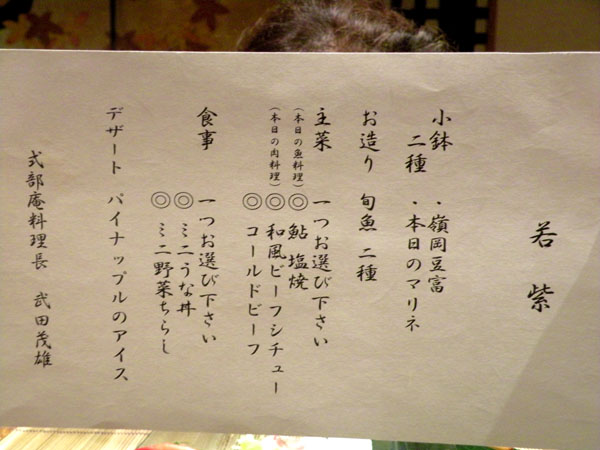 若紫
小鉢 ・嶺岡豆富
二種 ・本日のマリネ
お造り 旬魚 二種
主菜 一つお選び下さい
(本日の魚料理) ◎ 鮎 塩焼
(本日の肉料理) ◎ 和風ビーフシチュー
◎ コールドビーフ
食事 一つお選び下さい
◎ ミニうな丼
◎ ミニ野菜ちらし
デザート パイナップルのアイス
式部庵料理長 武田茂雄